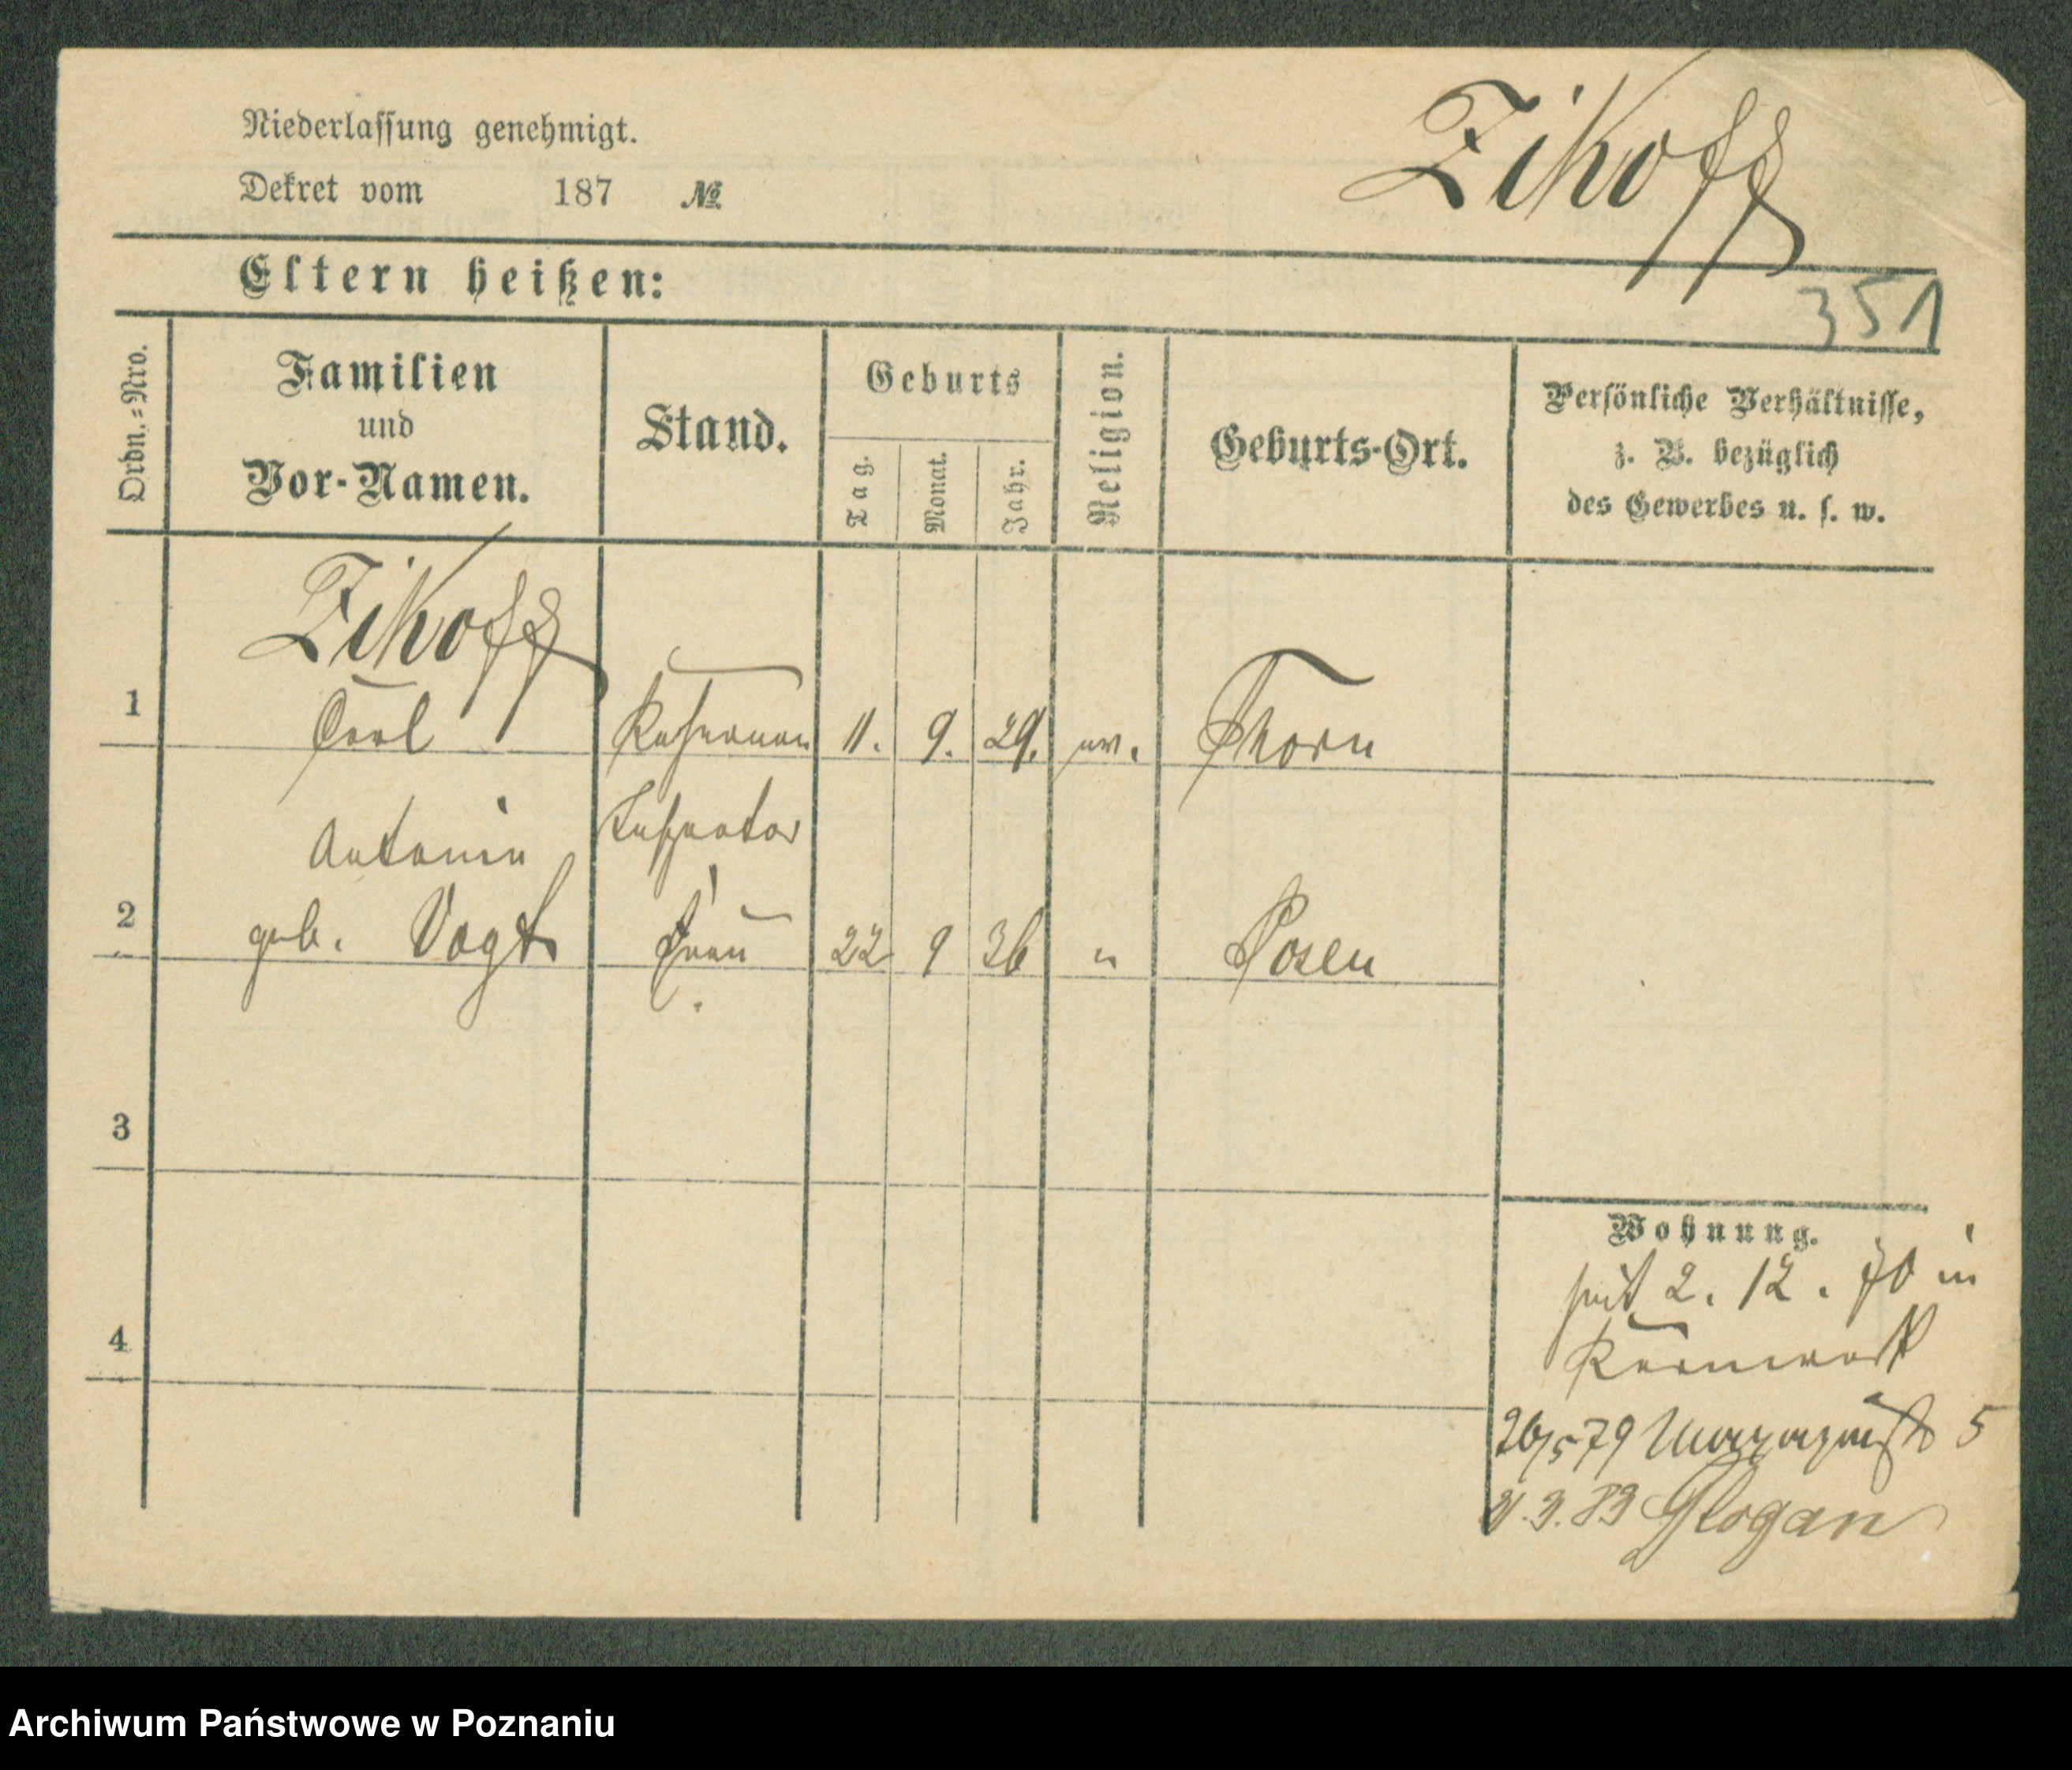 Niederlassung genehmigt.
Zikoff
Dekret vom 187 №
Eltern heißen:
351
Ordn.=Nro.
Familien
und
Vor-Namen.
Stand.
Geburts
Tag.
Monat.
Jahr.
Religion.
Geburts-Ort.
Persönliche Verhältnisse,
z. B. bezüglich
des Gewerbes u. s. w.
Zikoff
1 Carl Kasernen 11. 9. 29. ev. Thorn
Inspector
Antonie
2 geb. Vogt Frau 22 9 36 " Posen
3
Wohnung.
seit 2. 12. 70 in
4
Kernwerk
26/5 79 Magazinst 5
3. 83 Glogau
Archiwum Państwowe w Poznaniu